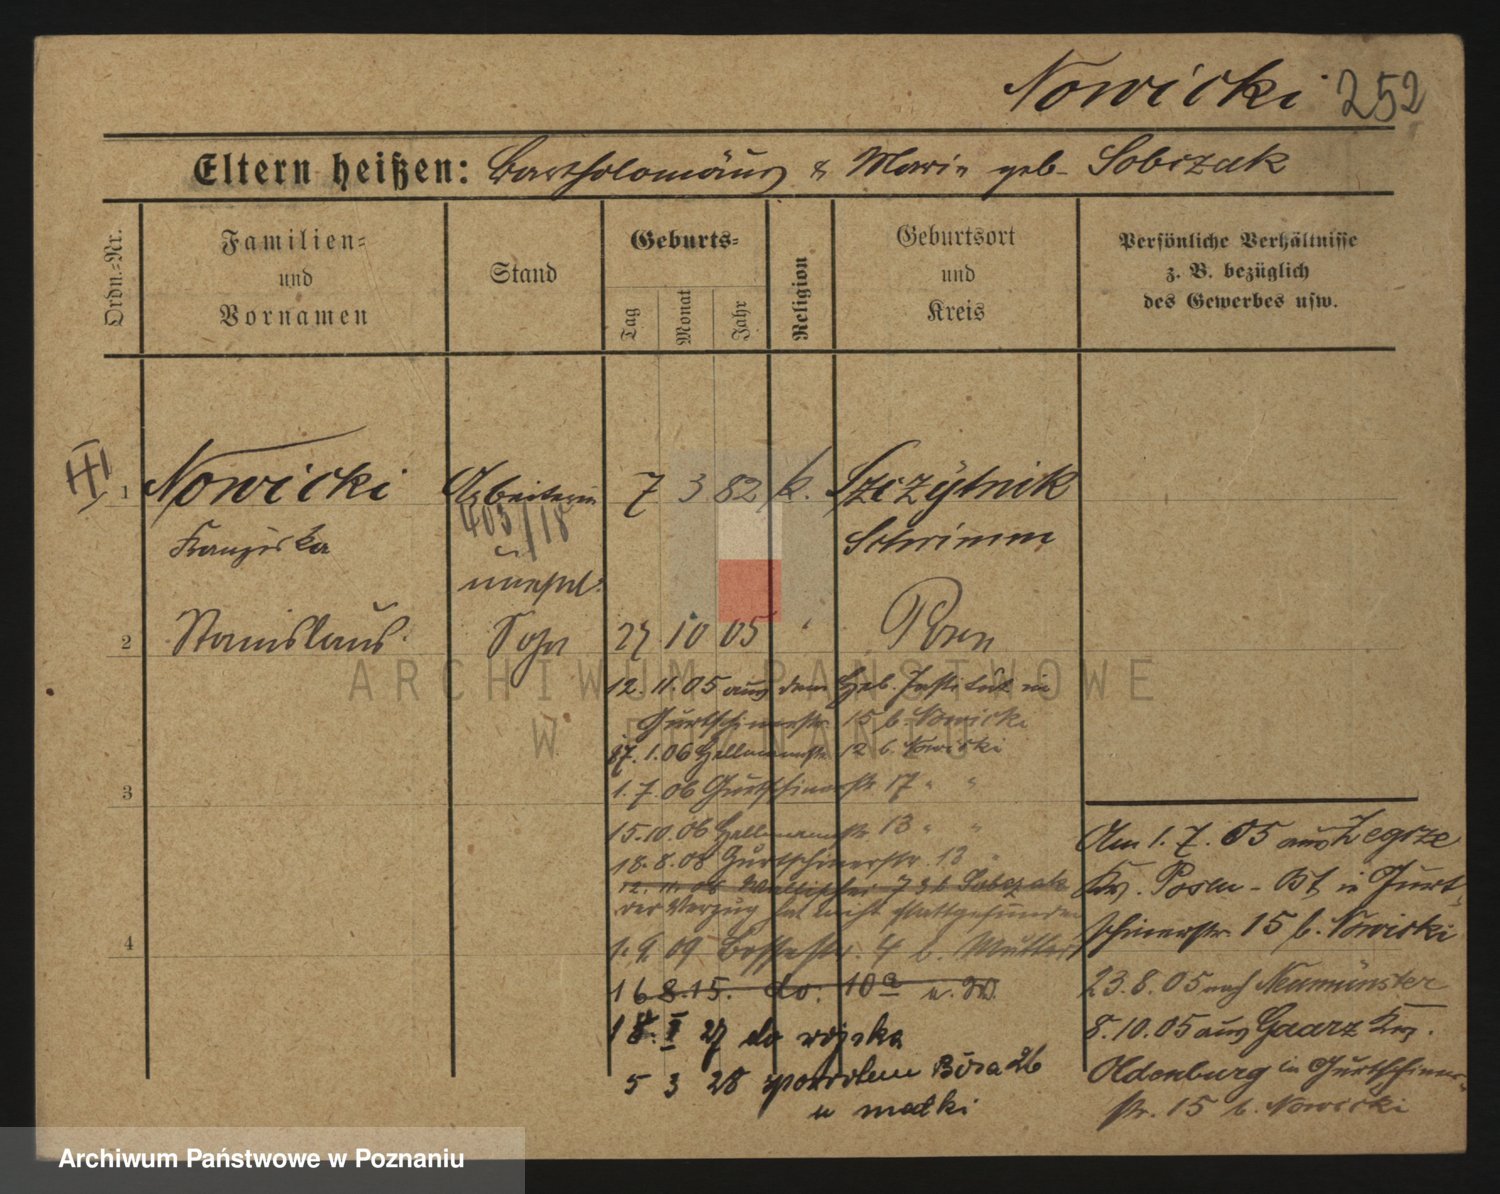 Nowicki 252
Eltern heißen: Bartholomäus & Marie geb. Sobczak
Ordn.=Nr.
Familien=
und
Vornamen
Stand
Geburts=
Tag
Monat
Jahr
Religion
Geburtsort
und
Kreis
Persönliche Verhältnisse
z. B. bezüglich
des Gewerbes usw.
1 Nowicki Arbeiterin 7 3 82 k. Szczytnik
403/18
Franziska Schrimm
unehel.
2 Stanislaus Sohn 27 10 05 " Posen
12. 11. 05 aus dem Heb. Institut in
Gurtschinerstr. 15 b. Nowicki
17. 1. 06 Hellmannstr. 12 b. Nowicki
3
1. 7. 06 Gurtschinerstr. 17 " "
15. 10. 06 Hellmannstr. 13 " "
18. 8. 08 Gurtschinerstr. 13 "
12. 11. 08 Wallischei 73 b. Sobczak
der Verzug hat nicht stattgefunden
4
1. 9. 09 str. 4 b. Mutter
16 8. 15. do. 10a u. W.
18. I 27 do wojska
5 3 28 zpowrotem Bósa 26
u matki
Am 1. 7. 05 aus Zegrze
Kr. Posen-Ost in Gurt-
schinerstr. 15 b. Nowicki
23. 8. 05 nach Neumünster
8. 10. 05 aus Gaarz Krs.
Oldenburg in Gurtschiner-
str. 15 b. Nowicki
ARCHIWUM PAŃSTWOWE
W POZNANIU
Archiwum Państwowe w Poznaniu